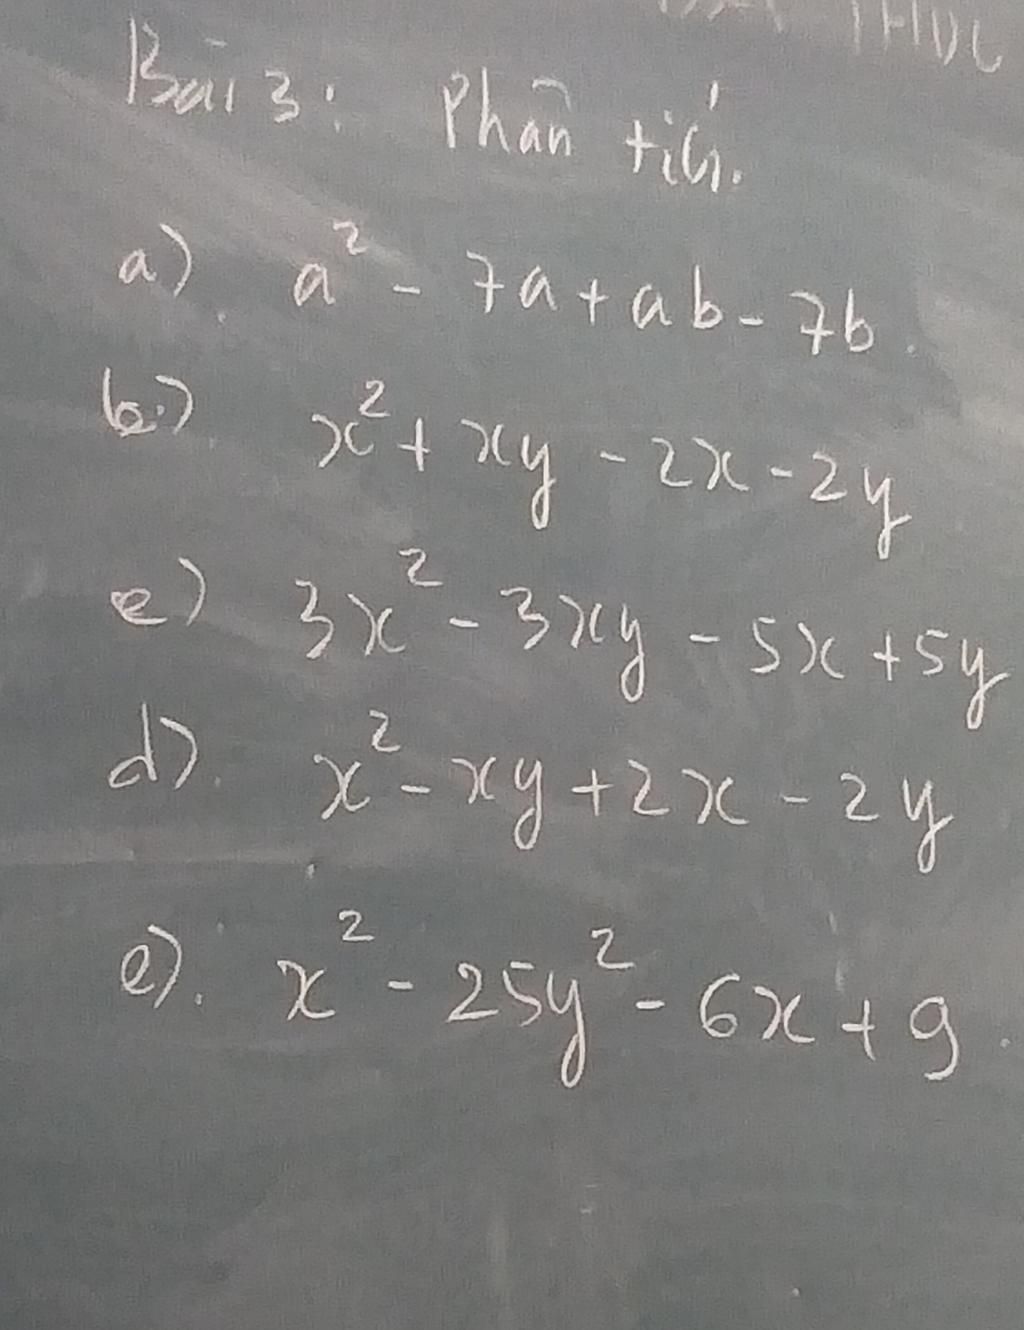 Bài 3: Phân tích.
a) a² - 7a + ab - 7b
b) x² + xy - 2x - 2y
c) 3x² - 3xy - 5x + 5y
d) x² - xy + 2x - 2y
e) x² - 25y² - 6x + 9